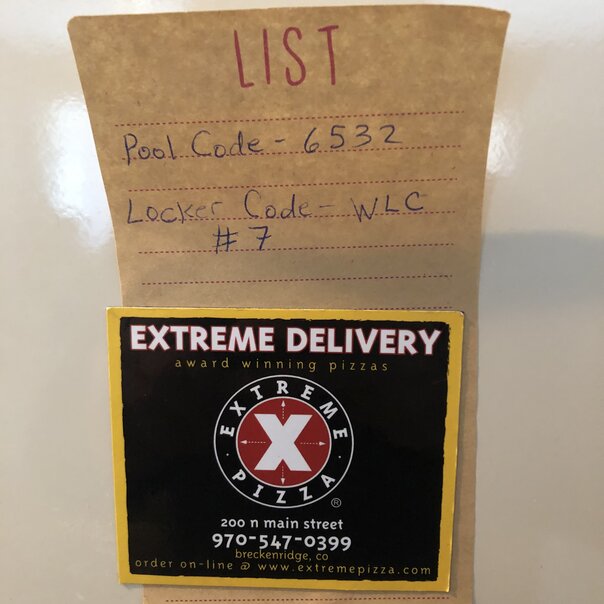 LIST
Pool Code - 6532
Locker Code - WLC
#7
EXTREME DELIVERY
award winning pizzas
EXTREME
X
PIZZA
®
200 n main street
970-547-0399
breckenridge, co
order on-line @ www.extremepizza.com